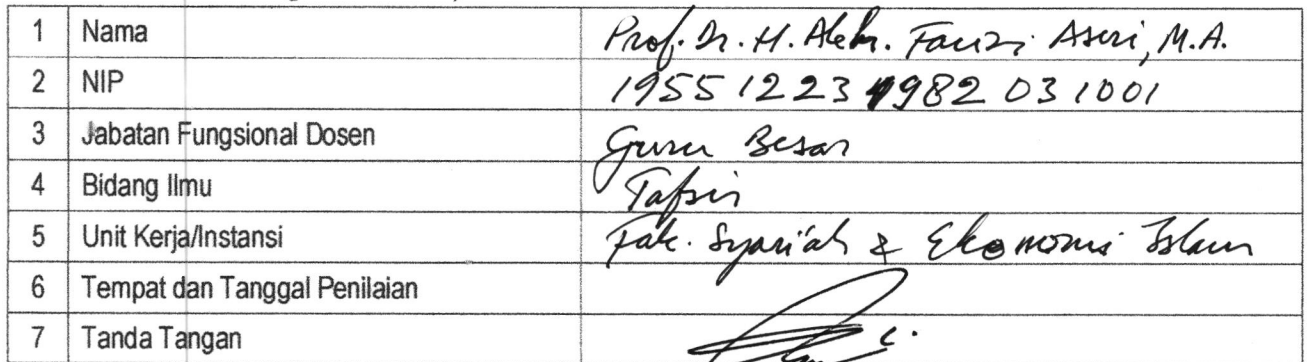 1 Nama Prof. Dr. H. Akh. Fauzi Aseri, M.A.
2 NIP 19551223 1982 03 1001
3 Jabatan Fungsional Dosen Guru Besar
4 Bidang Ilmu Tafsir
5 Unit Kerja/Instansi Fak. Syari'ah & Ekonomi Islam
6 Tempat dan Tanggal Penilaian
7 Tanda Tangan